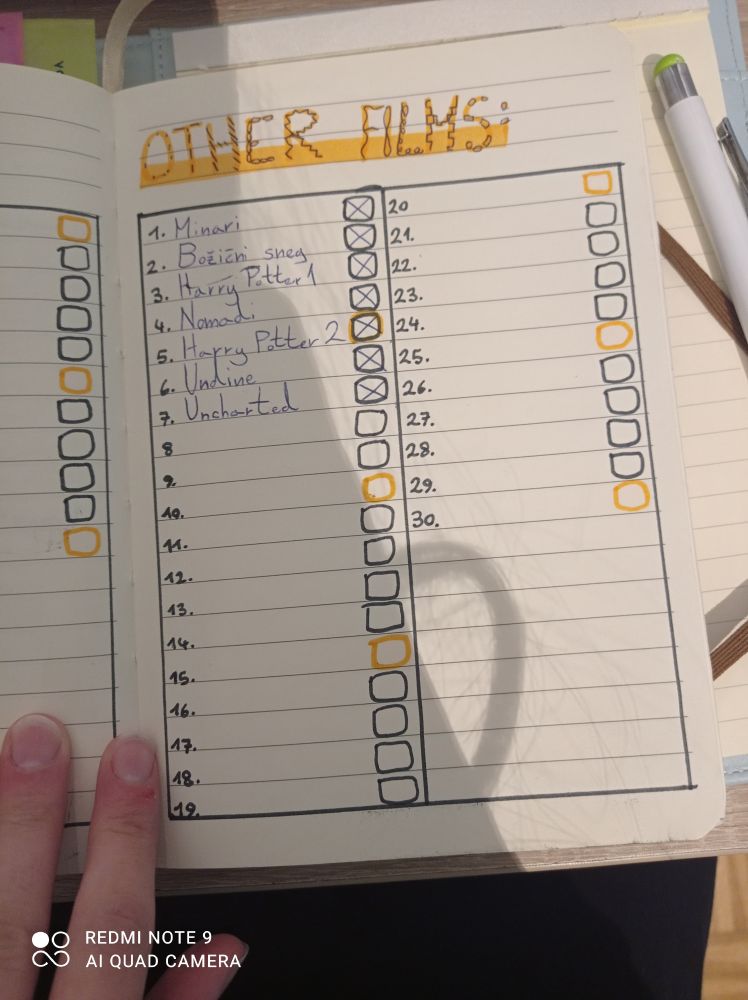 OTHER FILMS:
1. Minari
2. Božični sneg
3. Harry Potter 1
4. Nomadi
5. Harry Potter 2
6. Undine
7. Uncharted
8
9.
10.
11.
12.
13.
14.
15.
16.
17.
18.
19.
20
21.
22.
23.
24.
25.
26.
27.
28.
29.
30.
REDMI NOTE 9
AI QUAD CAMERA